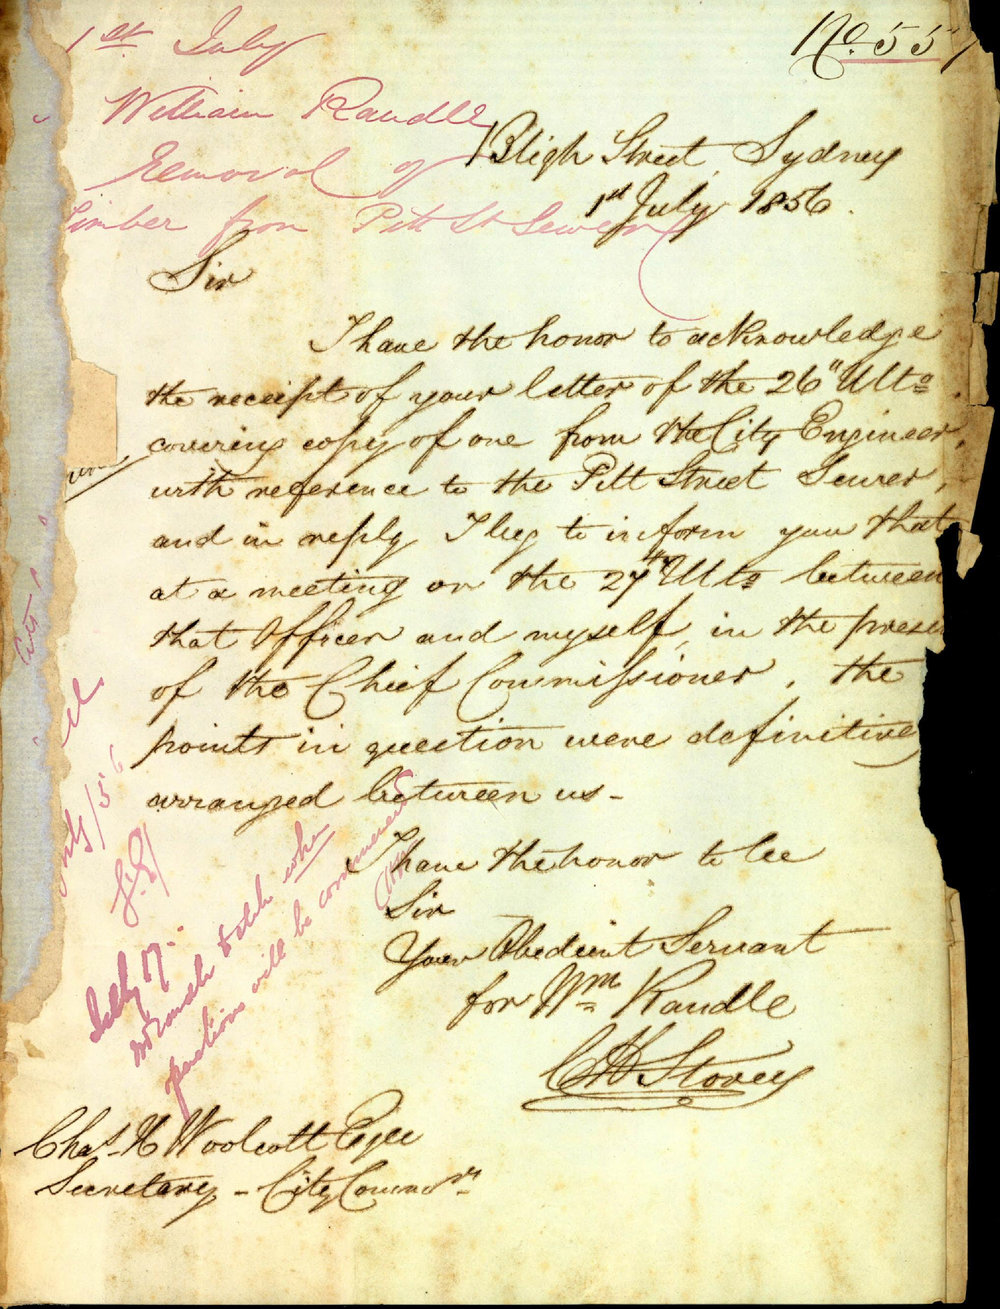 No. 557
1st July
William Randle
Removal of
Timber from Pitt St Sewer
1 Bligh Street, Sydney
1st July 1856.
Sir
I have the honor to acknowledge
the receipt of your letter of the 26" Ulto.
covering copy of one from the City Engineer,
with reference to the Pitt Street Sewer,
and in reply I beg to inform you that
at a meeting on the 27th Ulto between
that Officer and myself, in the prese
of the Chief Commissioner, the
points in question were definitive
arranged between us-
I have the honor to be
Sir
Your Obedient Servant
for Wm Randle
C H Storey
Chas. H Woolcott Esqre
Secretary - City Commrs.
July 17.
Mr Randle to state when
operations will be commenced